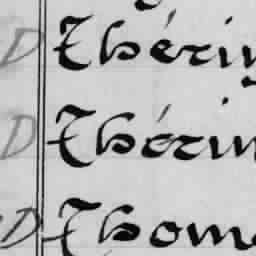 D Thériy
D Thérin
D Thoma